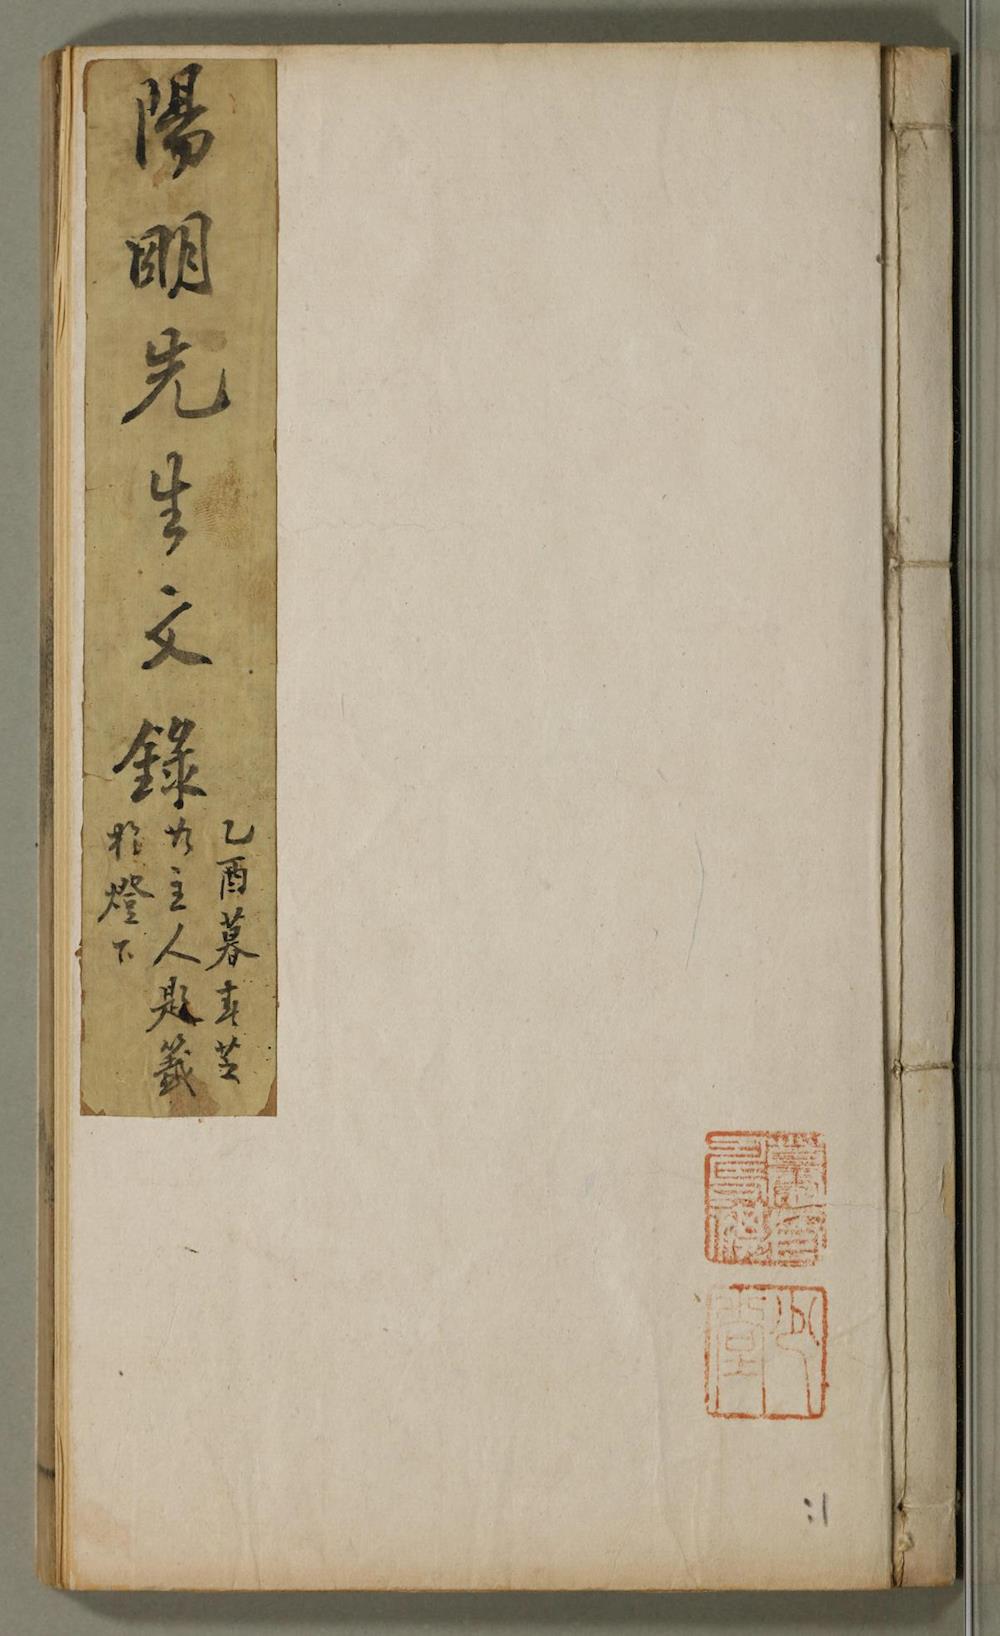 陽明先生文錄
乙酉暮春芝
艿主人題籤
於燈下